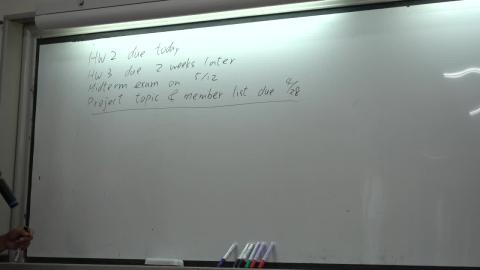 HW2 due today
HW3 due 2 weeks later
Midterm exam on 5/12
Project topic & member list due 4/28